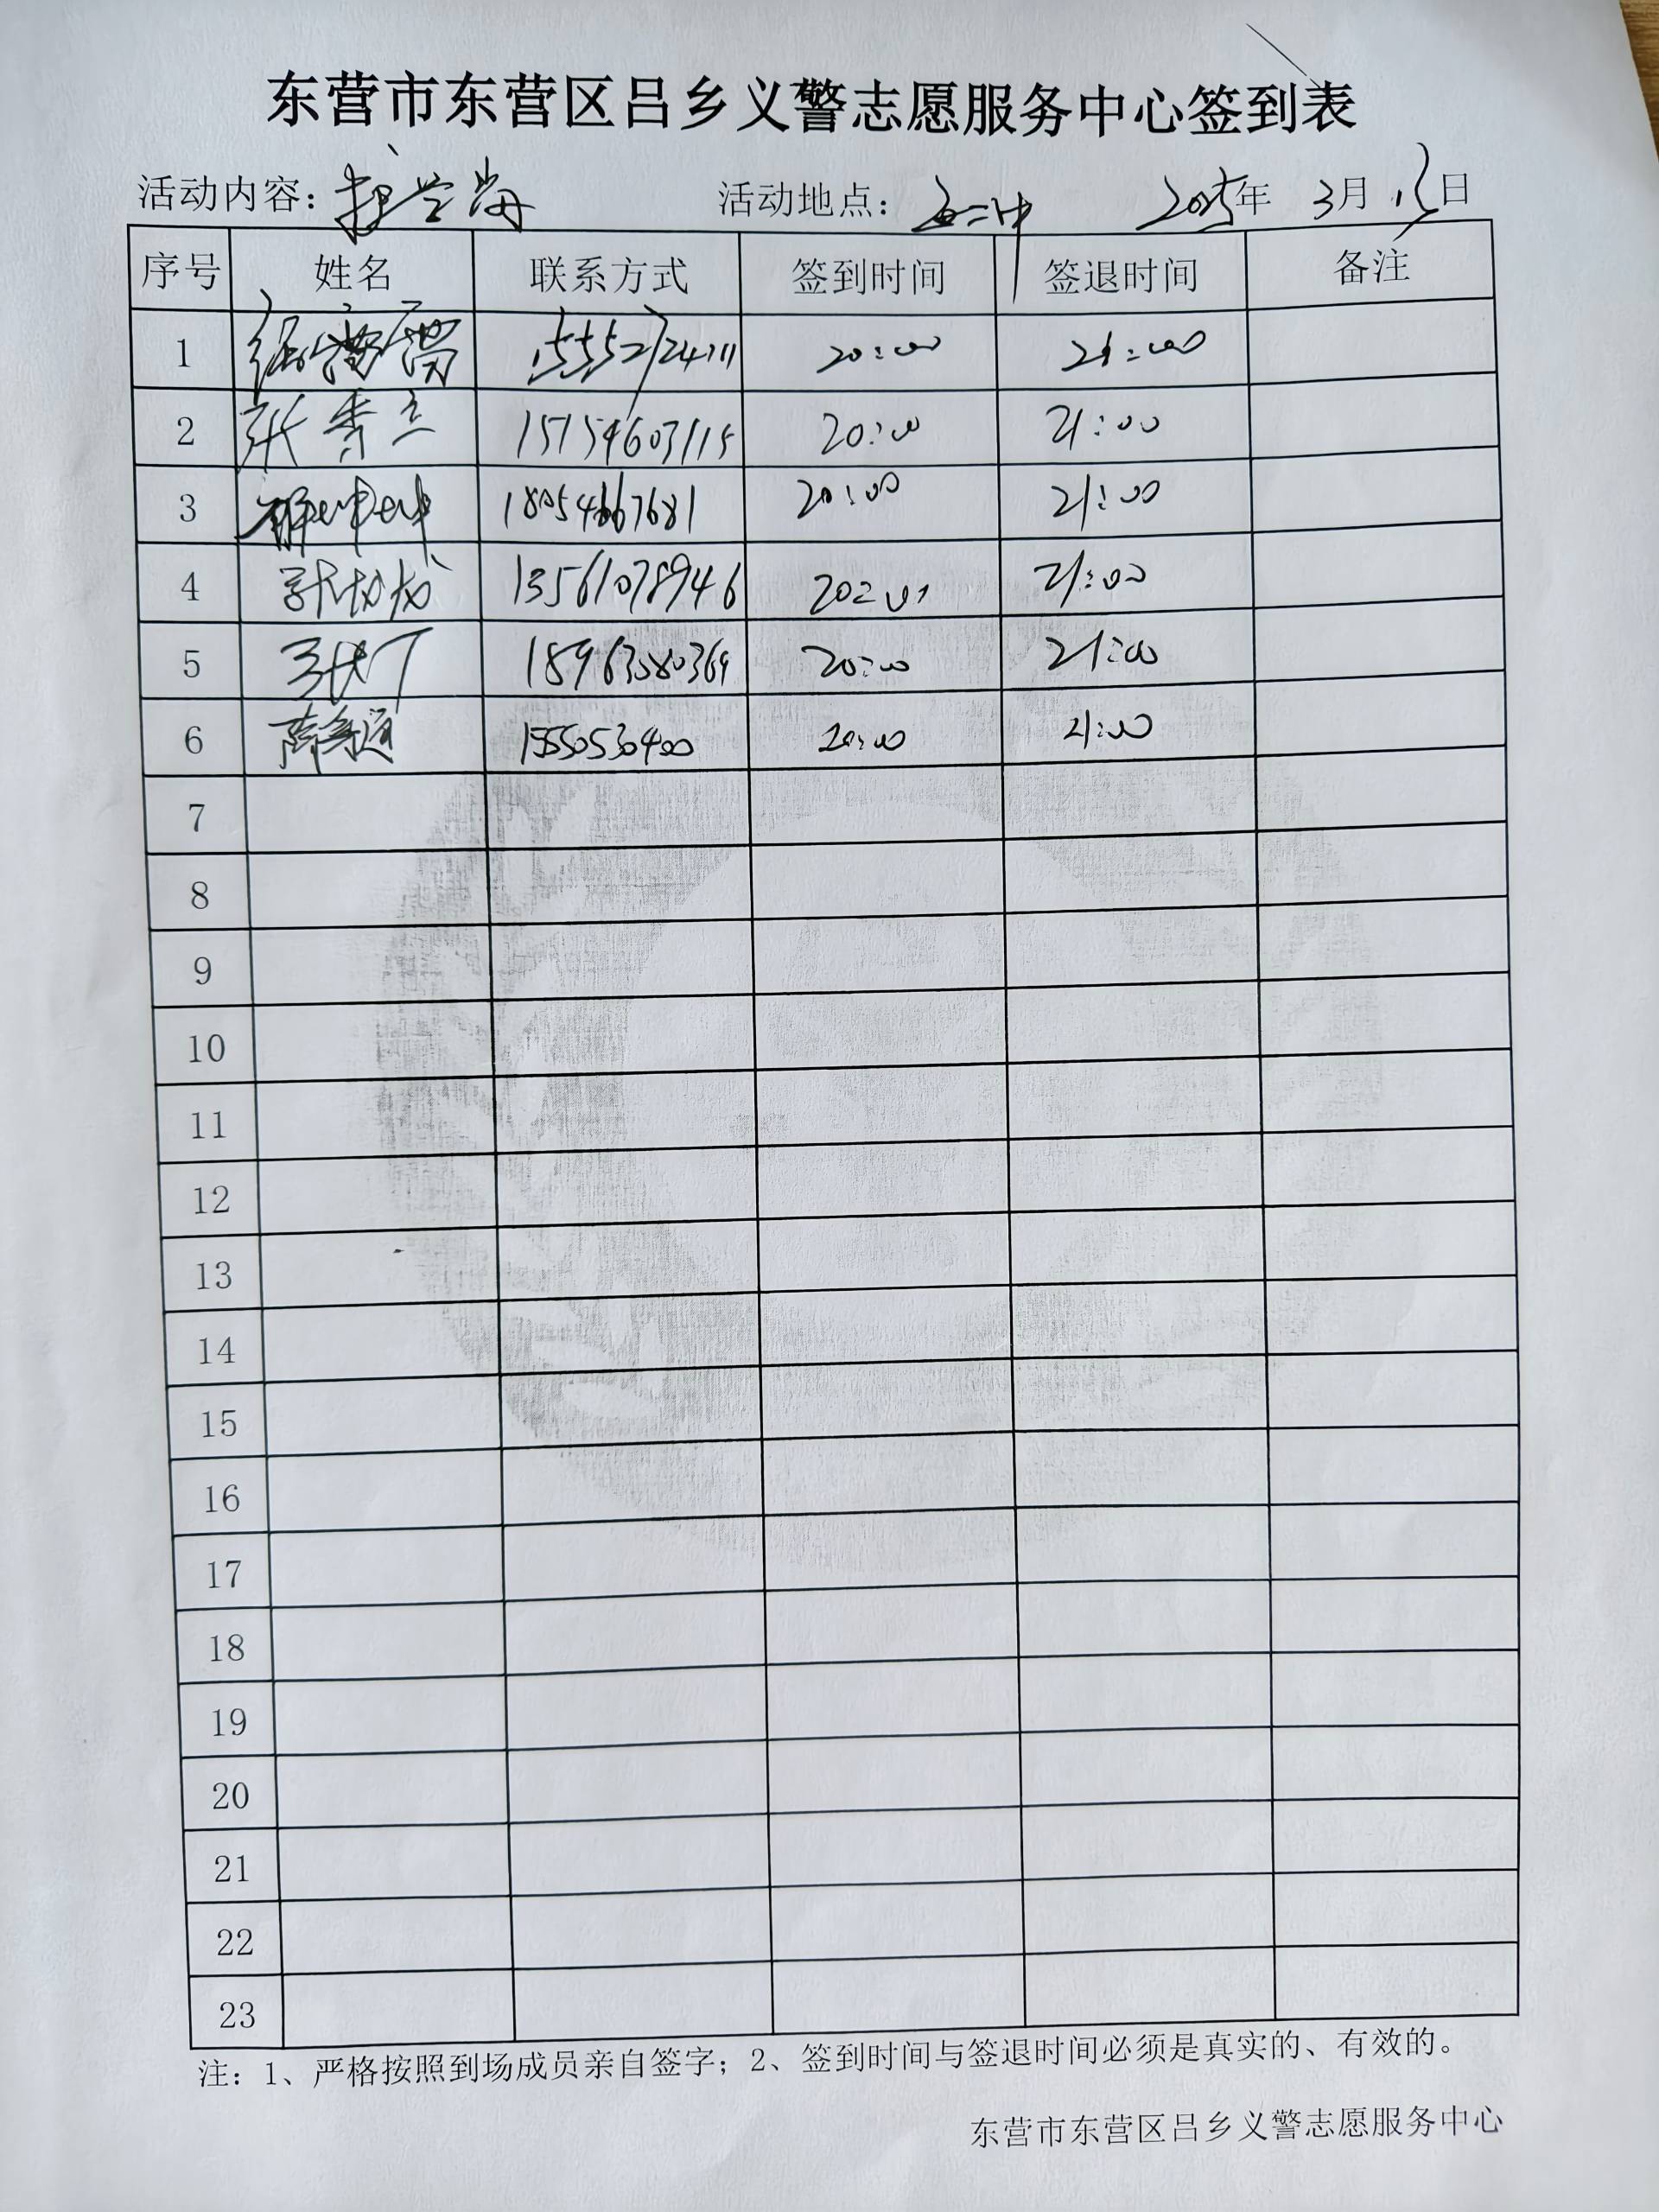 东营市东营区吕乡义警志愿服务中心签到表
活动内容： 活动地点： 2025年 3月15日
序号 姓名 联系方式 签到时间 签退时间 备注
1 20:00 21:00
2 张秀兰 15154603115 20:00 21:00
3 18054667681 20:00 21:00
4 张成龙 13561078946 20:00 21:00
5 20:00 21:00
6 15550530400 20:00 21:00
7
8
9
10
11
12
13
14
15
16
17
18
19
20
21
22
23
注：1、严格按照到场成员亲自签字；2、签到时间与签退时间必须是真实的、有效的。
东营市东营区吕乡义警志愿服务中心